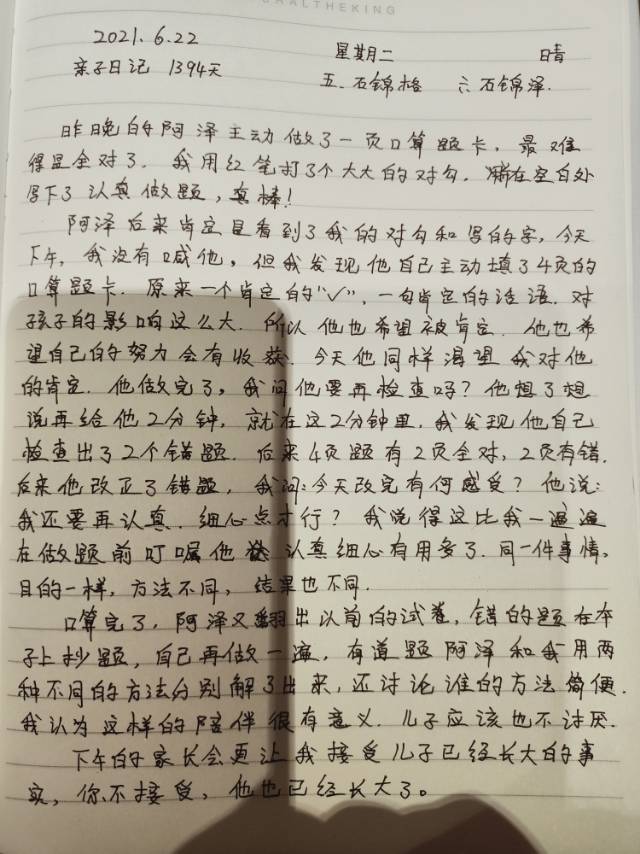 URALTHEKING
2021.6.22 星期二 晴
亲子日记 1394天 五.石锦格 六石锦泽.
昨晚的阿泽主动做了一页口算题卡,最难
得是全对了.我用红笔打了个大大的对勾.漪在空白处
写下了认真做题,真棒!
阿泽后来肯定是看到了我的对勾和写的字,今天
下午,我没有喊他,但我发现他自己主动填了4页的
口算题卡.原来一个肯定的"✓",一句肯定的话语.对
孩子的影响这么大.所以他也希望被肯定.他也希
望自己的努力会有收获.今天他同样渴望我对他
的肯定.他做完了,我问他要再检查吗?他想了想
说再给他2分钟,就在这2分钟里,我发现他自己
检查出了2个错题.后来4页题有2页全对,2页有错.
后来他改正了错题,我问:今天改完有何感受?他说:
我还要再认真.细心点才行?我觉得这比我一遍遍
在做题前叮嘱他 认真细心有用多了.同一件事情,
目的一样,方法不同,结果也不同.
口算完了,阿泽又翻出以前的试卷,错的题在本
子上抄题,自己再做一遍,有道题阿泽和我用两
种不同的方法分别解了出来,还讨论谁的方法简便.
我认为这样的陪伴很有意义.儿子应该也不讨厌.
下午的家长会更让我接受儿子已经长大的事
实,你不接受,他也已经长大了。